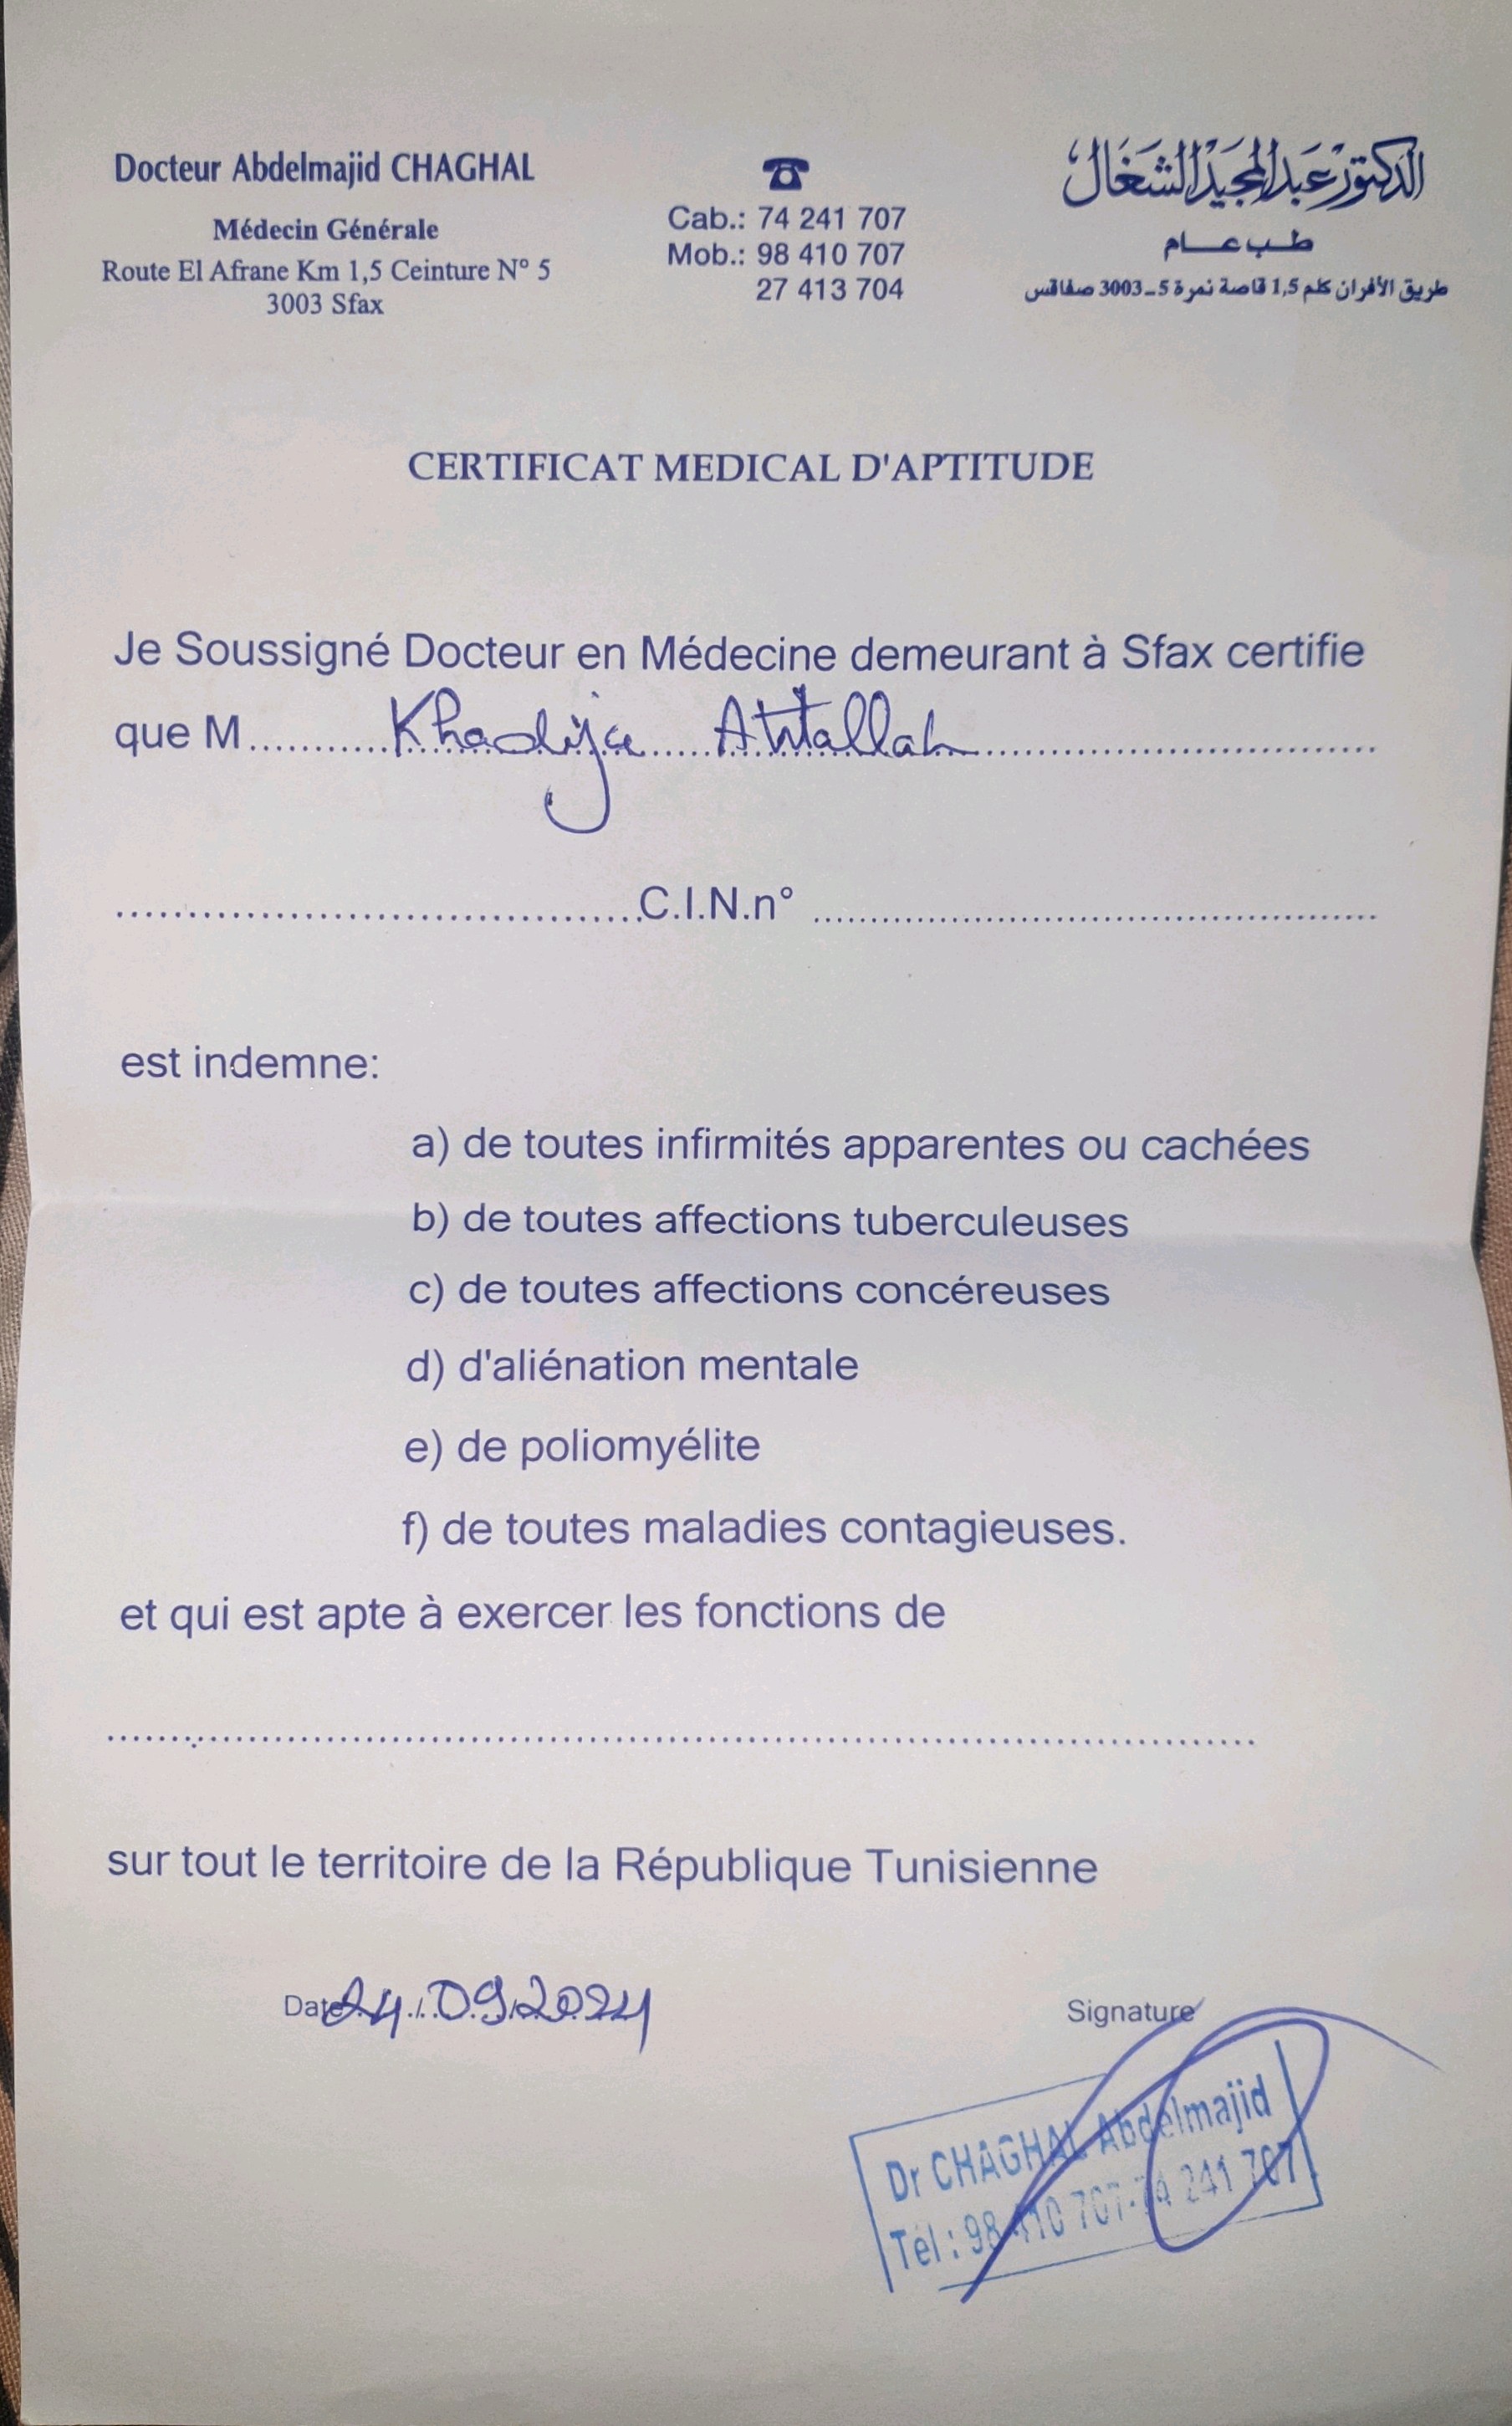 Docteur Abdelmajid CHAGHAL
Médecin Générale
Route El Afrane Km 1,5 Ceinture N° 5
3003 Sfax
☎
Cab.: 74 241 707
Mob.: 98 410 707
27 413 704
الدكتور عبد المجيد الشغال
طب عام
طريق الأفران كلم 1,5 قاصة نمرة 5 ـ 3003 صفاقس
CERTIFICAT MEDICAL D'APTITUDE
Je Soussigné Docteur en Médecine demeurant à Sfax certifie
que M Khadija Attallah
C.I.N.n°
est indemne:
a) de toutes infirmités apparentes ou cachées
b) de toutes affections tuberculeuses
c) de toutes affections concéreuses
d) d'aliénation mentale
e) de poliomyélite
f) de toutes maladies contagieuses.
et qui est apte à exercer les fonctions de
sur tout le territoire de la République Tunisienne
Date 24/09/2024
Signature
Dr CHAGHAL Abdelmajid
Tél : 98 410 707-74 241 707